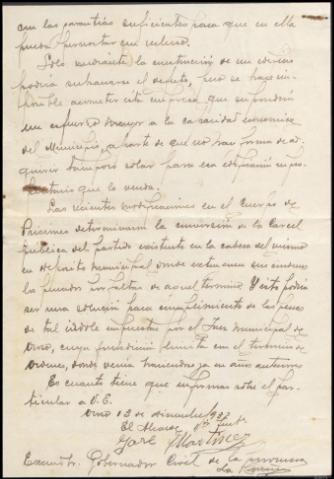 con las garantías suficientes para que en ella
pueda pernoctar un recluso.
Solo mediante la construcción de un edificio
podría subsanarse el defecto, pero se hace im-
posible acometer esta empresa, que supondría
un esfuerzo mayor a la capacidad economica
del Municipio, aparte de que no hay forma de ad-
quirir tampoco solar para esa edificación
que lo venda.
Las recientes modificaciones en el Cuerpo de
Prisiones determinaron la conversión de la Carcel
pública del partido existente en la cabeza del mismo
en deposito municipal donde extinguen sus condenas
los penados por faltas de aquel termino. Y esto podría
ser una solución para cumplimiento de las penas
de tal índole impuestas por el Juez municipal de
cuya jurisdicción limita con el termino de
Ordenes, donde venía haciendose ya en años anteriores
Es cuanto tiene que informar sobre el par-
ticular a V.E.
13 de diciembre 1937
El Alcalde
José Martínez
Excmo. Sr. Gobernador Civil de la provincia
La Coruña